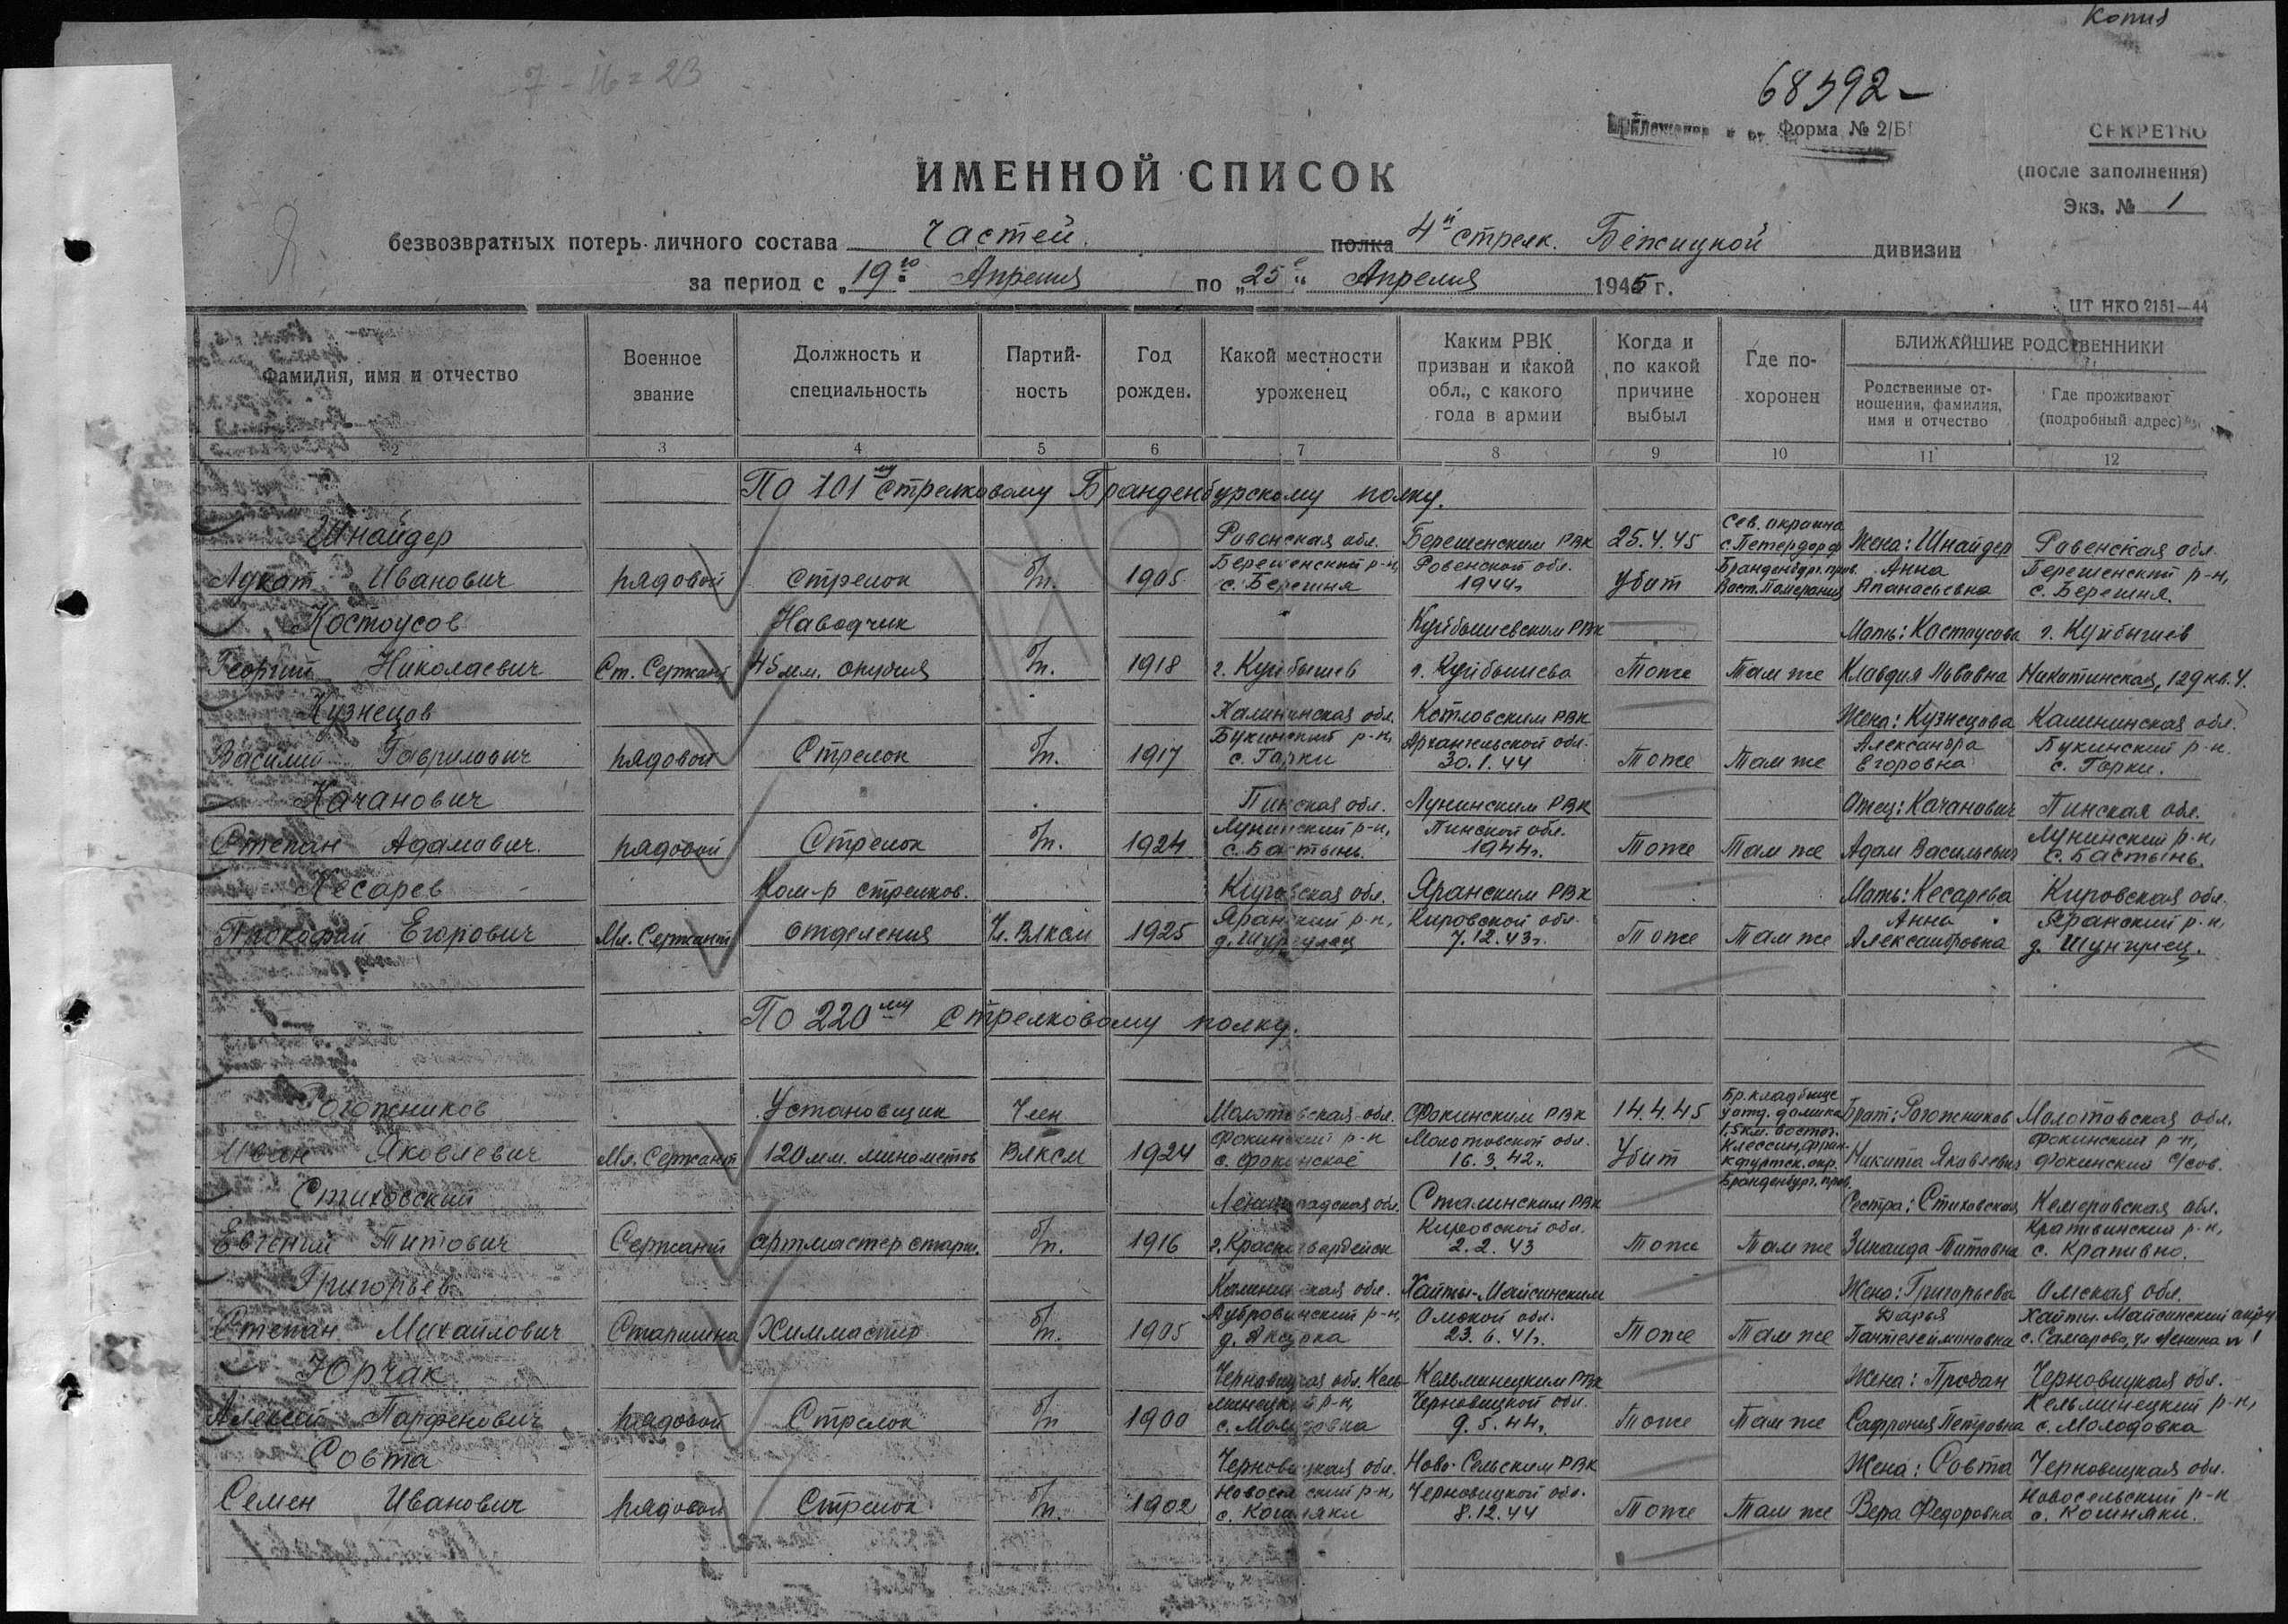 Копия
7-16=23
68592-
Форма № 2/Б
СЕКРЕТНО
(после заполнения)
Экз. № 1
ИМЕННОЙ СПИСОК
безвозвратных потерь личного состава частей полка 4й стрелк. Бежицкой дивизии
за период с „19го" Апреля по „25е" Апреля 1945 г.
ЦТ НКО 2151—44
Фамилия, имя и отчество
Военное звание
Должность и специальность
Партийность
Год рожден.
Какой местности уроженец
Каким РВК призван и какой обл., с какого года в армии
Когда и по какой причине выбыл
Где похоронен
БЛИЖАЙШИЕ РОДСТВЕННИКИ
Родственные отношения, фамилия, имя и отчество
Где проживают (подробный адрес)
2 3 4 5 6 7 8 9 10 11 12
По 101му стрелковому Бранденбурскому полку.
Шнайдер Ровенская обл. Береженским РВК 25.4.45 Сев. окраина с. Петердорф Жена: Шнайдер Ровенская обл.
Иванович рядовой стрелок б/п. 1905 Береженский р-н, с. Бережня Ровенской обл. 1944г. убит Бранденбург. пров. Вост. Померания Анна Апанасьевна Береженский р-н, с. Бережня.
Костоусов Наводчик Куйбышевским РВК Мать: Костоусова г. Куйбышев
Георгий Николаевич Ст. Сержант 45 мм. орудия б/п. 1918 г. Куйбышев г. Куйбышева Тоже Там же Клавдия Львовна Никитинская, 129 кв. 4.
Кузнецов Калининская обл. Котловским РВК Жена: Кузнецова Калининская обл.
Василий Гаврилович рядовой Стрелок б/п. 1917 Букинский р-н, с. Горки Архангельской обл. 30.1.44 Тоже Там же Александра Егоровна Букинский р-н. с. Горки.
Качанович Пинская обл. Лунинским РВК Отец: Качанович Пинская обл.
Степан Адамович. рядовой Стрелок б/п. 1924 Лунинский р-н, с. Бастынь. Пинской обл. 1944г. Тоже Там же Адам Васильевич Лунинский р-н, с. Бастынь.
Кесарев Ком-р стрелков. Кировская обл. Яранским РВК Мать: Кесарева Кировская обл.
Прокофий Егорович Мл. Сержант отделения Чл. ВЛКСМ 1925 Яранский р-н, Кировской обл. 7.12.43г. Тоже Там же Анна Александровна Яранский р-н, д. Шунгулец.
По 220му стрелковому полку.
Рогожников Установщик Член Молотовская обл. Фокинским РВК 14.4.45 Бр. кладбище у отд. домика Брат: Рогожников Молотовская обл.
Иван Яковлевич Мл. Сержант 120 мм. минометов ВЛКСМ 1924 Фокинский р-н с. Фокинское Молотовской обл. 16.3.42г. Убит 1,5 км. восточ. Клессин, Франкфуртск. окр. Бранденбург. пров. Никита Яковлевич Фокинский р-н, Фокинский с/сов.
Стиховский Ленинградская обл. Сталинским РВК Сестра: Стиховская Кемеровская обл.
Евгений Титович Сержант артмастер старш. б/п. 1916 г. Красногвардейск Кировской обл. 2.2.43 Тоже Там же Зинаида Титовна Крапивинский р-н, с. Крапивно.
Григорьев Калининская обл. Ханты-Майсинским Жена: Григорьева Омская обл.
Степан Михайлович Старшина Химмастер б/п. 1905 Дубровинский р-н, Омской обл. 23.6.41г. Тоже Там же Дарья Пантелеймоновна Ханты. Майсинский округ. с. Самарово, ул Ленина № 1
Юрчак Черновицкая обл. Кель- Кельминецким РВК Жена: Продан Черновицкая обл.
Алексей Парфенович рядовой Стрелок б/п 1900 минецкий р-н, с. Молодовка Черновицкой обл. 9.5.44г. Тоже Там же Сафрония Петровна Кельминецкий р-н, с. Молодовка
Совта Черновицкая обл. Ново-Сельским РВК Жена: Совта Черновицкая обл.
Семен Иванович рядовой Стрелок б/п. 1902 Новосельский р-н, с. Кошняки Черновицкой обл. 8.12.44 Тоже Там же Вера Федоровна Новосельский р-н с. Кошняки.